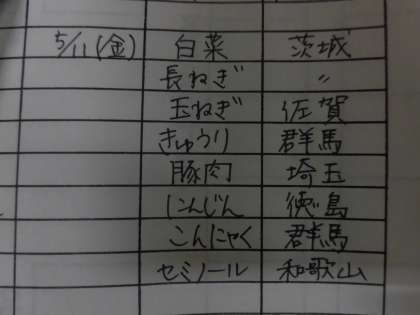 5/11(金) 白菜 茨城
長ねぎ 〃
玉ねぎ 佐賀
きゅうり 群馬
豚肉 埼玉
にんじん 徳島
こんにゃく 群馬
セミノール 和歌山